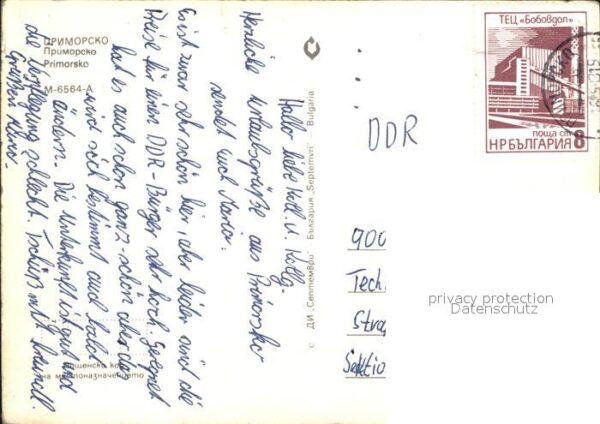 ПРИМОРСКО
Приморско
Primorsko
М-6564-А
Hallo liebe Koll. u. Kollg.
Herzliche Urlaubsgrüße aus Primorsko
sendet euch Mario.
Es ist zwar sehr schön hier, aber leider sind die
Preise für einen DDR-Bürger sehr hoch. Geregnet
hat es auch schon ganz schön aber das
wird sich bestimmt auch bald
ändern. Die Unterkunft ist gut und
die Verpflegung schlecht. Tschüß mit
Grüßen Mario.
ДИ „Септември" България „Septemvri" Bulgaria
на местоназначението
ТЕЦ „Бобовдол"
поща ст
НР БЪЛГАРИЯ 8
DDR
900
Tech.
Stra
Sektio
privacy protection
Datenschutz